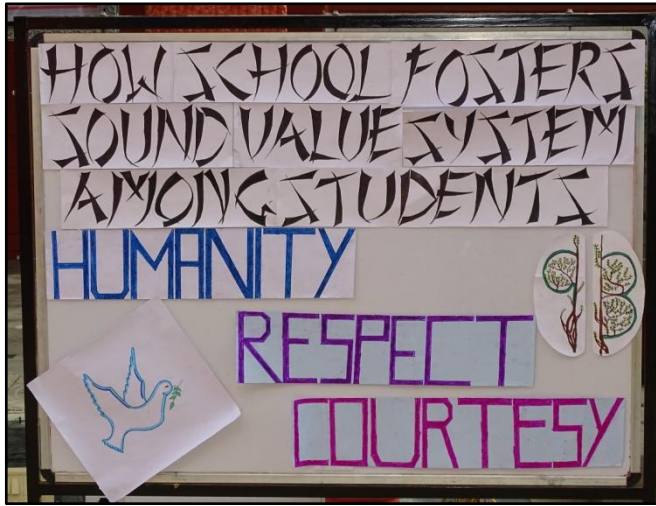 HOW SCHOOL FOSTERS
SOUND VALUE SYSTEM
AMONG STUDENTS
HUMANITY
RESPECT
COURTESY